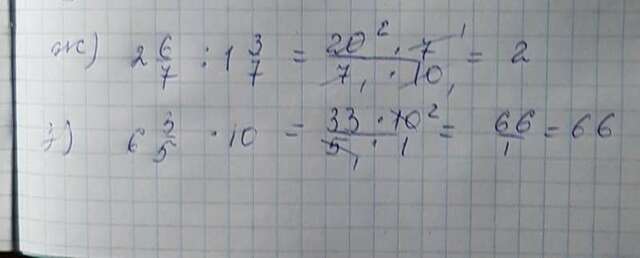 ж) 2 6/7 : 1 3/7 = (20² · 7¹)/(7₁ · 10₁) = 2
з) 6 3/5 · 10 = (33 · 10²)/(5₁ · 1) = 66/1 = 66